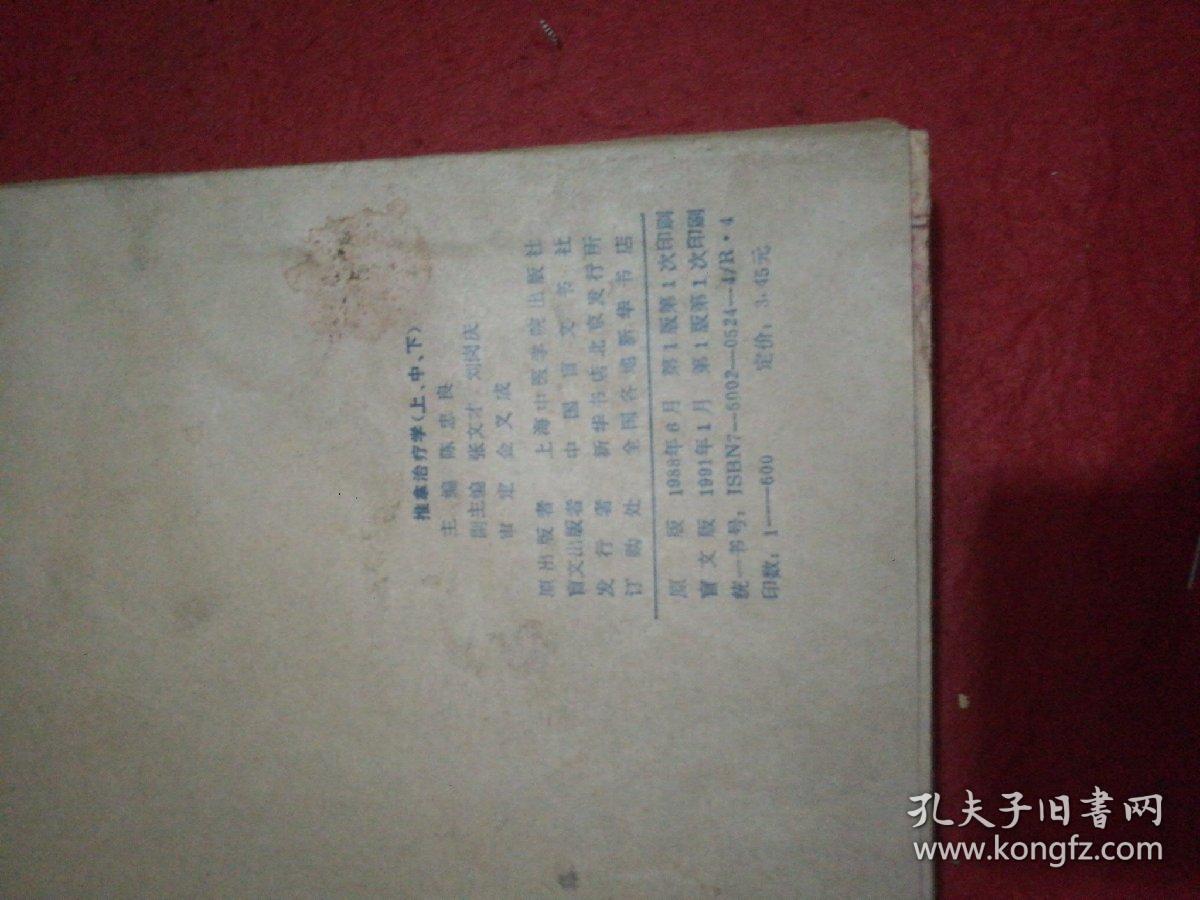 推拿治疗学(上、中、下)
主 编 陈 忠 良
副主编 张文才 刘岗庆
审 定 金 义 成
原出版者 上海中医学院出版社
盲文出版者 中国盲文书社
发 行 者 新华书店北京发行所
订 购 处 全国各地新华书店
原 版 1988年6月 第1版第1次印刷
盲文版 1991年1月 第1版第1次印刷
统一书号:ISBN7—5002—0524—4/R·4
印数:1——600 定价:3.45元
孔夫子旧书网
www.kongfz.com